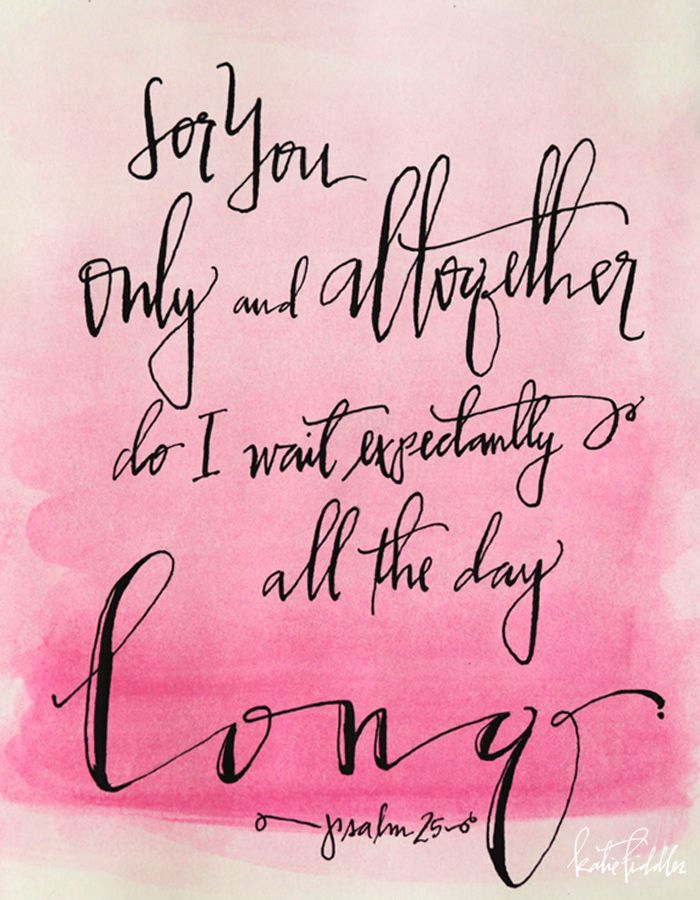 for You
only and altogether
do I wait expectantly
all the day
long
psalm 25
katie fiddler